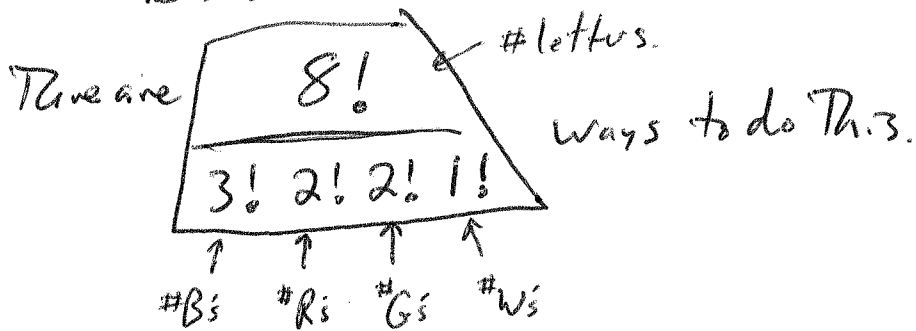 There are 8! / 3! 2! 2! 1! ways to do This.
#letters.
#B's #R's #G's #W's